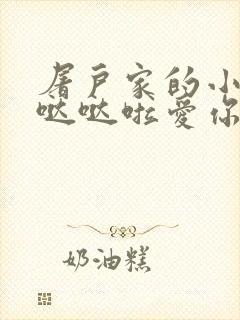 屠户家的小
哒哒啦爱你
奶油糕